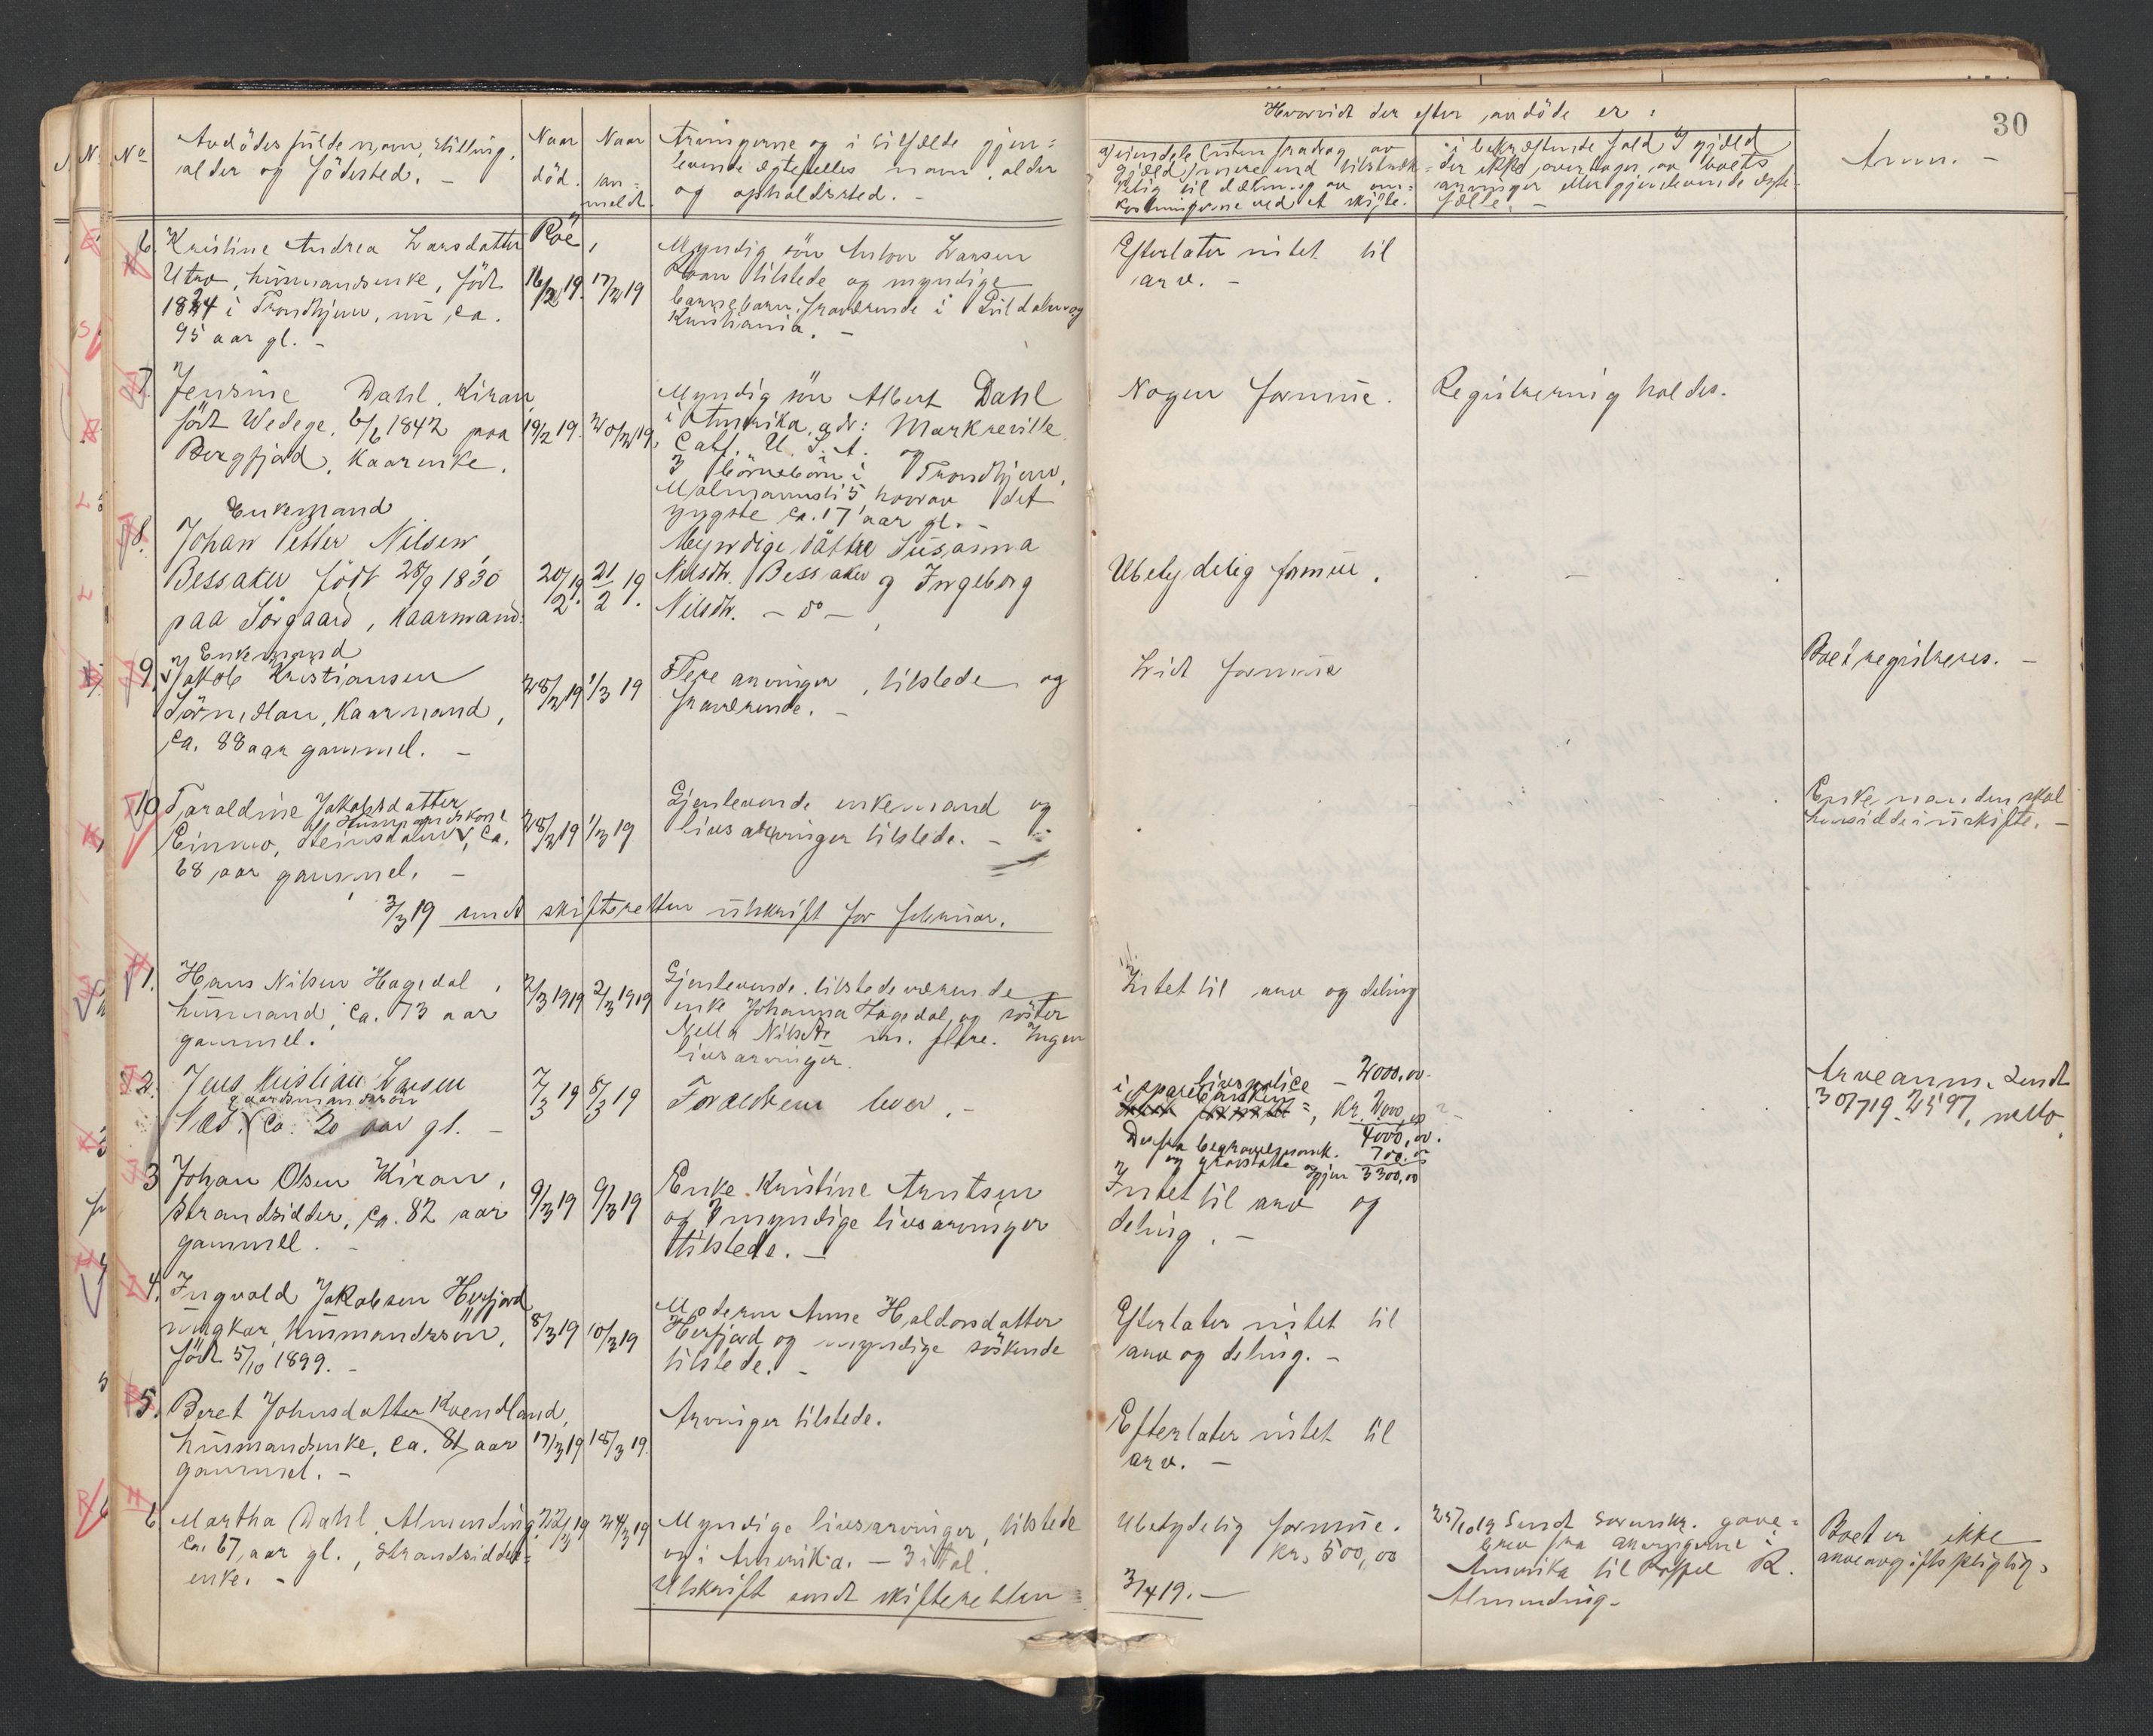 30
No
Avdødes fulde navn, stilling,
alder og fødested. -
Naar
død.
Naar
an=
meldt.
Arvingerne og i tilfælde gjen=
levende egtefælles navn, alder
og opholdssted. -
Hvorvidt der efter avdøde er:
gjæld
kostningerne ved et skifte.
i bekræftende fald og gjæld
der ikke overtages av boets
arvinger eller gjenlevende egte=
fælle. -
Anm. -
6. Kristine Andrea Larsdatter Roë,
Utro, husmandsenke, født
1824 i Trondhjem, nu ca.
95 aar gl. -
16/2 19. 17/2 19
Myndig søn Anton Larsen
Roan tilstede og myndige
barnebarn fraværende i
Kristiania. -
Efterlater intet til
arv. -
7. Jensine Dahl, Kiran,
født Wedege, 6/6 1842 paa
Bergfjord, Kaarenke.
19/2 19. 20/2 19.
Myndig søn Albert Dahl
i Amerika, adr: Markreville
Calf. U. S. A. og
3 børnebørn i Trondhjem,
hvorav det
yngste ca. 17 aar gl. -
Nogen formue.
Registrering holdes.
Enkemand
8. Johan Petter Nilsen,
Bessaker født 28/9 1830
paa Sørgaard, Kaarmand.
20/2 19. 21/2 19.
Myndige døttre Susanna
Nilsdtr. Bessaker og Ingeborg
Nilsdtr. - do -
Ubetydelig formue.
Enkemand
9. Jakob Kristiansen
Kaarmand,
ca. 88 aar gammel. -
28/2 19 1/3 19
Flere arvinger, tilstede og
fraværende. -
Lidt formue
Boet registreres. -
10 Taraldine Jakobsdatter
Husmandskone
Einmo, Steinsdalen, ca.
68 aar gammel. -
28/2 19 1/3 19
Gjenlevende enkemand og
livsarvinger tilstede. -
Enkemanden skal
hensidde i uskifte. -
3/3 19 sendt skifteretten utskrift for februar.
1. Hans Nilsen Hagedal,
husmand, ca. 73 aar
gammel.
2/3 1919 2/3 1919
Gjenlevende tilstedeværende
enke Johanna Hagedal og søster
m. flere. Ingen
livsarvinger.
Intet til arv og deling
2. Jens Kristian Larsen
gaardmandssøn
ca. 20 aar gl. -
7/3 19 8/3 19
Forældrene lever. -
livspolice - 2000,00
i sparebanken =, Kr. 2000,00
4000,00.
Derfra begravelsesomk. 700,00
og gravstøtte igjen 3300,00
Arveanm. sendt
30/7 19. 2597, netto.
3 Johan Olsen Kiran,
strandsidder, ca. 82 aar
gammel. -
9/3 19 9/3 19
Enke Kristine Arntsen
og 7 myndige livsarvinger
tilstede. -
Intet til arv og
deling. -
4. Ingvald Jakobsen Herfjord
ungkar, husmandssøn,
født 5/10 1899. -
8/3 19 10/3 19
Moderen Anne Haldorsdatter
Herfjord og myndige søskende
tilstede. -
Efterlater intet til
arv og deling. -
5. Beret Johnsdatter Kvendland,
husmandsenke, ca. 81 aar
gammel. -
17/3 19 18/3 19.
Arvinger tilstede.
Efterlater intet til
arv. -
6 Martha Dahl, Almenning,
ca. 67 aar gl., strandsidder=
enke. -
22/3 19 24/3 19
Myndige livsarvinger, tilstede
og i Amerika. - 3 i tal.
Ubetydelig formue.
Kr. 500,00
sendt sorenskr. gave=
brev fra arvingerne i
Amerika til R.
Almenning.
Boet er ikke
arveavgiftspligtig.
Utskrift sendt skifteretten
3/4 19. -